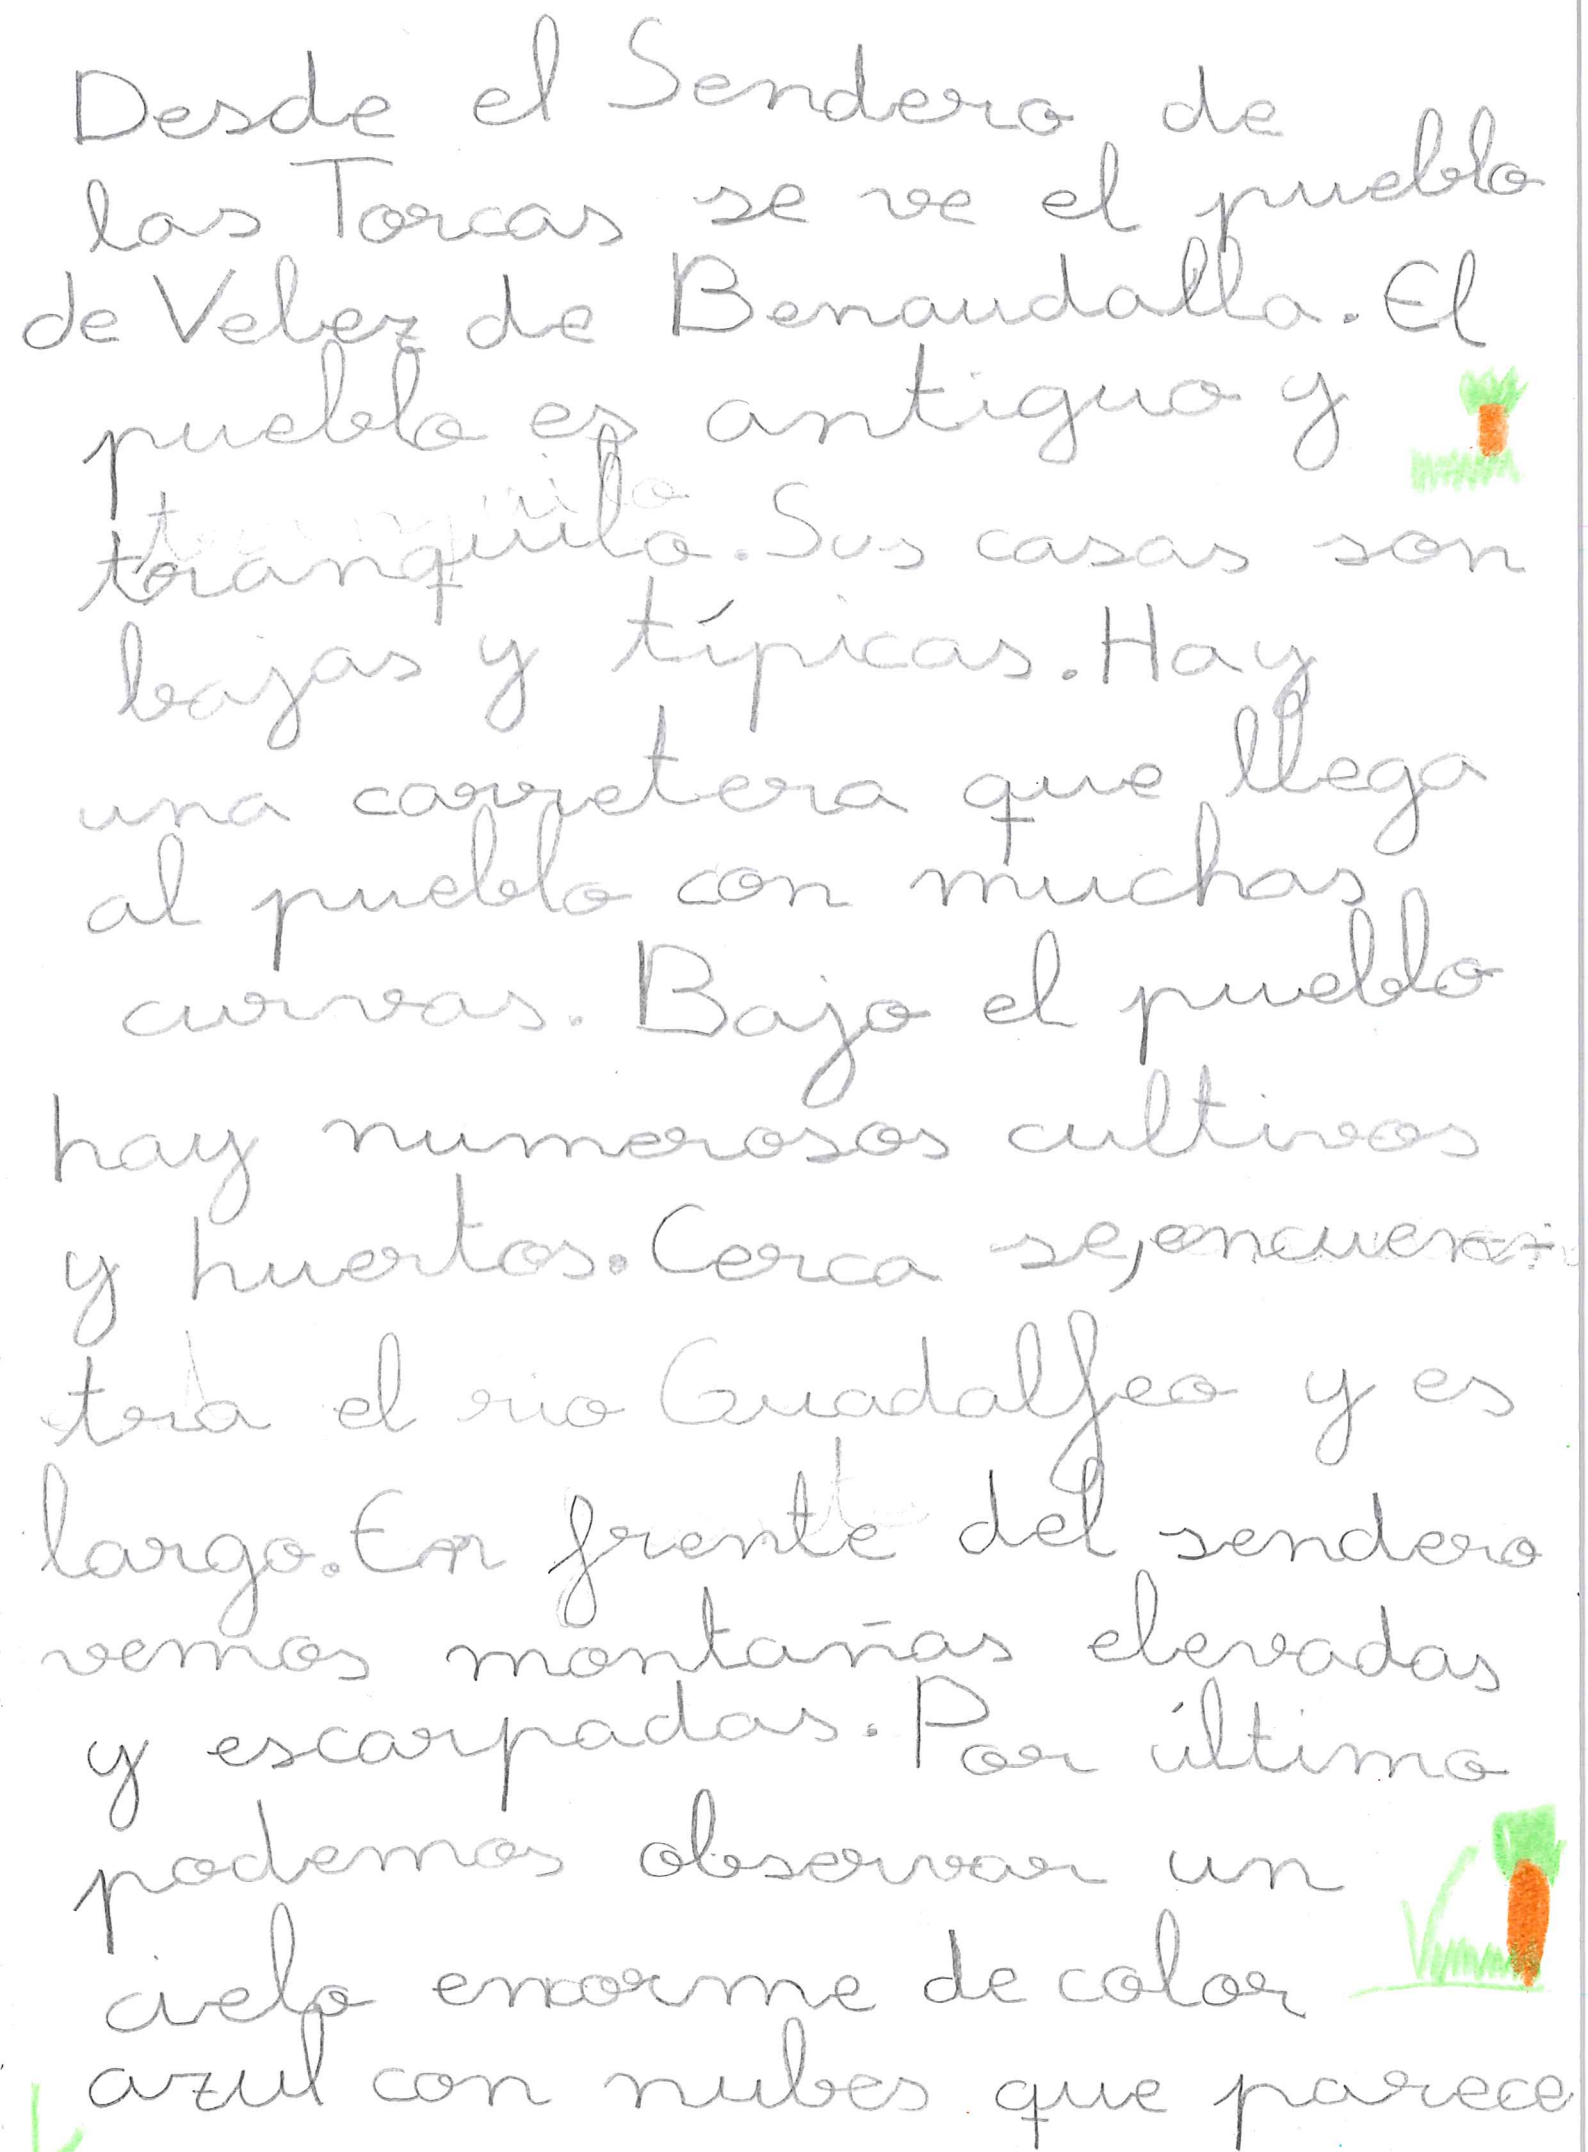 Desde el Sendero de
las Torcas se ve el pueblo
de Velez de Benaudalla. El
pueblo es antiguo y
tranquilo. Sus casas son
bajas y típicas. Hay
una carretera que llega
al pueblo con muchas
curvas. Bajo el pueblo
hay numerosos cultivos
y huertos. Cerca se, encuen-
tra el rio Guadalfeo y es
largo. En frente del sendero
vemos montañas elevadas
y escarpadas. Por último
podemos observar un
cielo enorme de color
azul con nubes que parece